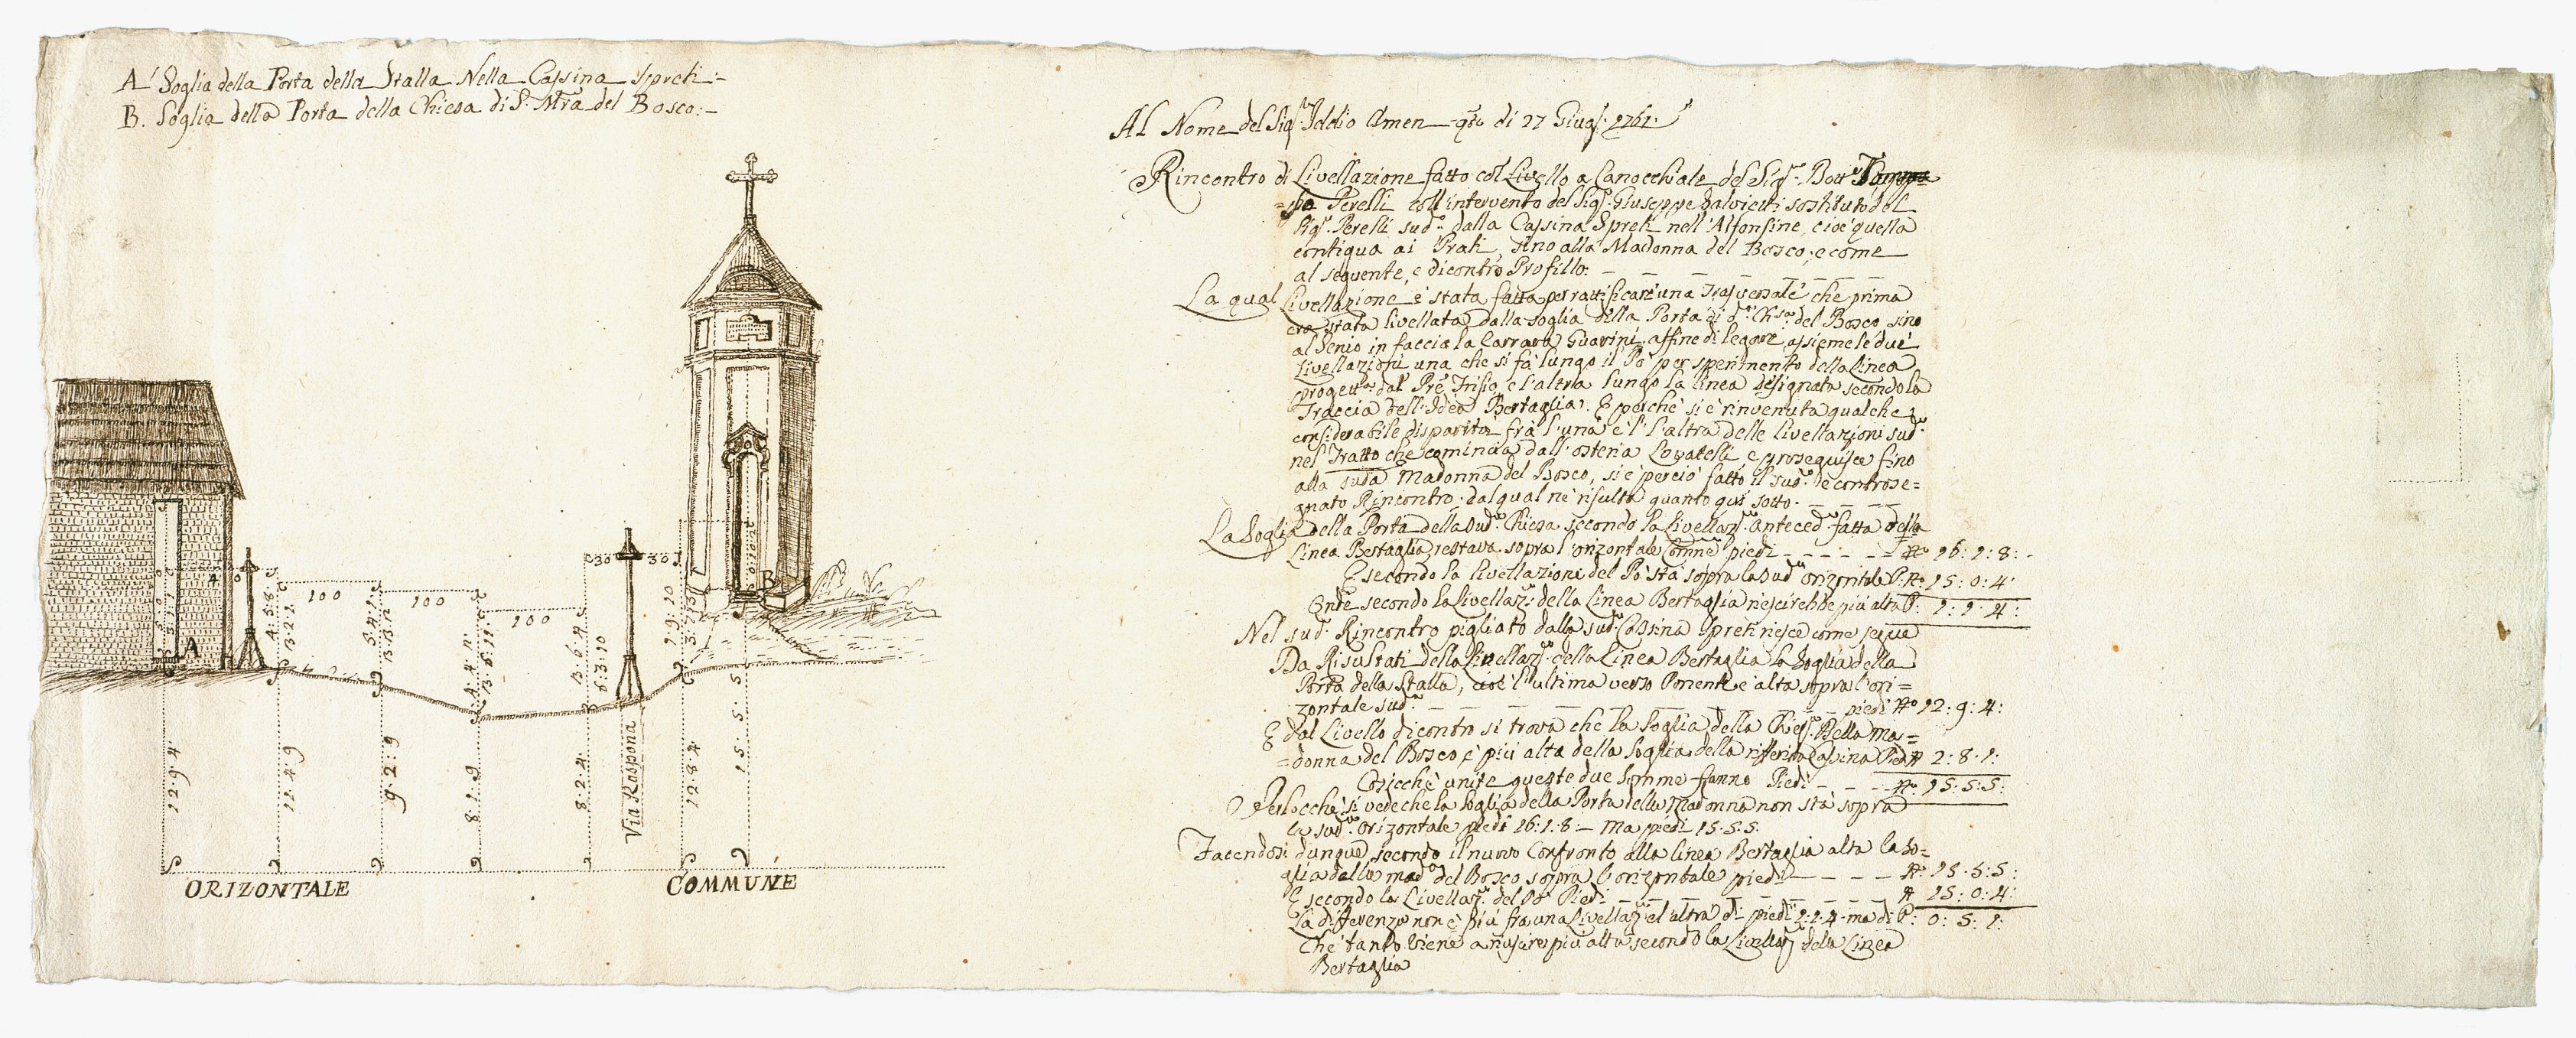 A. Soglia della Porta della Stalla Nella Cassina Spreti :-
B. Soglia della Porta della Chiesa di S. Mra del Bosco :-
Al Nome del Sigr Iddio Amen qto di 27 Giugo 1761.
Rincontro di Livellazione fatto col Livello a Canocchiale del Sigr Dottr
Perelli coll'intervento del Sigr Giuseppe Salvietti sostituto del
Sigr Perelli sudo dalla Cassina Spreti nell'Alfonsine, cioè quella
contigua ai Prati, sino alla Madonna del Bosco, e come
al seguente, e dicontro Profillo. -
La qual Livellazione è stata fatta per rattificare una Trasversale che prima
era stata livellata dalla soglia della Porta di da Chsa del Bosco sino
al Senio in faccia la Carrara Guarini affine di legare assieme le due
Livellazioni una che si fà lungo il Pò per sperimento della Linea
progetta dal Pre Frisio, e l'altra lungo la linea designata secondo la
Traccia dell'Idea Bertaglia. E perchè si è rinvenuta qualche
considerabile disparità frà l'una è l'altra delle livellazioni sude
nel Tratto che comincia dall'osteria Lovatelli e proseguisce fino
alla suda Madonna del Bosco, si è perciò fatto il sudo e controse=
gnato Rincontro; dal qual ne risulta quanto qui sotto. -
La Soglia della Porta della suda Chiesa secondo la Livellazne anteceda fatta della
Linea Bertaglia restava sopra l'orizontale Comne piedi - - - - No 16: 1: 8: -
E secondo la livellazioni del Pò stà sopra la suda orizontale P. No 15: 0: 4:
Onde secondo la Livellaz: della Linea Bertaglia riescirebbe più alta P: 1: 1: 4:
Nel sudo Rincontro pigliato dalla suda Cassina Spreti riesce come segue
Da Risultati della Livellazne della Linea Bertaglia la Soglia della
Porta della Stalla, cioè l'ultima verso Ponente è alta sopra l'ori=
zontale suda - - - - piedi No 12: 9: 4:
E dal Livello dicontro si trova che la soglia della Chiesa Della Ma=
=donna del Bosco, è più alta della Soglia della rifferita Cassina Piedi 2: 8: 1:
Cosicchè unite queste due somme fanno Piedi - - - No 15: 5: 5:
Perlocchè si vede che la soglia della Porta della Madonna non stà sopra
la suda orizontale piedi 16: 1: 8: - Ma piedi 15. 5. 5.
Facendosi dunque secondo il nuovo Confronto alla linea Bertaglia alta la So=
glia della Mada del Bosco sopra l'orizontale piedi - - - - No 15: 5: 5:
E secondo la Livellazne del Pò Piedi - - - - 15: 0: 4:
La differenza non è più fra una Livellazne e l'altra di piedi 1: 1: 4 ma di P: 0: 5: 1:
Che tanto viene a riuscire più alta secondo la Livellazne della Linea
Bertaglia
A
B
100
100
100
30
30
4: 5: 8
13: 2: 1
5: 4: 1
13: 6: 11
13: 6: 4
6: 3: 10
1: 9: 10
12: 9: 4
11: 4: 9
9: 2: 9
8: 1: 9
8: 2: 4
Via Raspona
12: 8: 4
15: 5: 5
ORIZONTALE COMMUNE